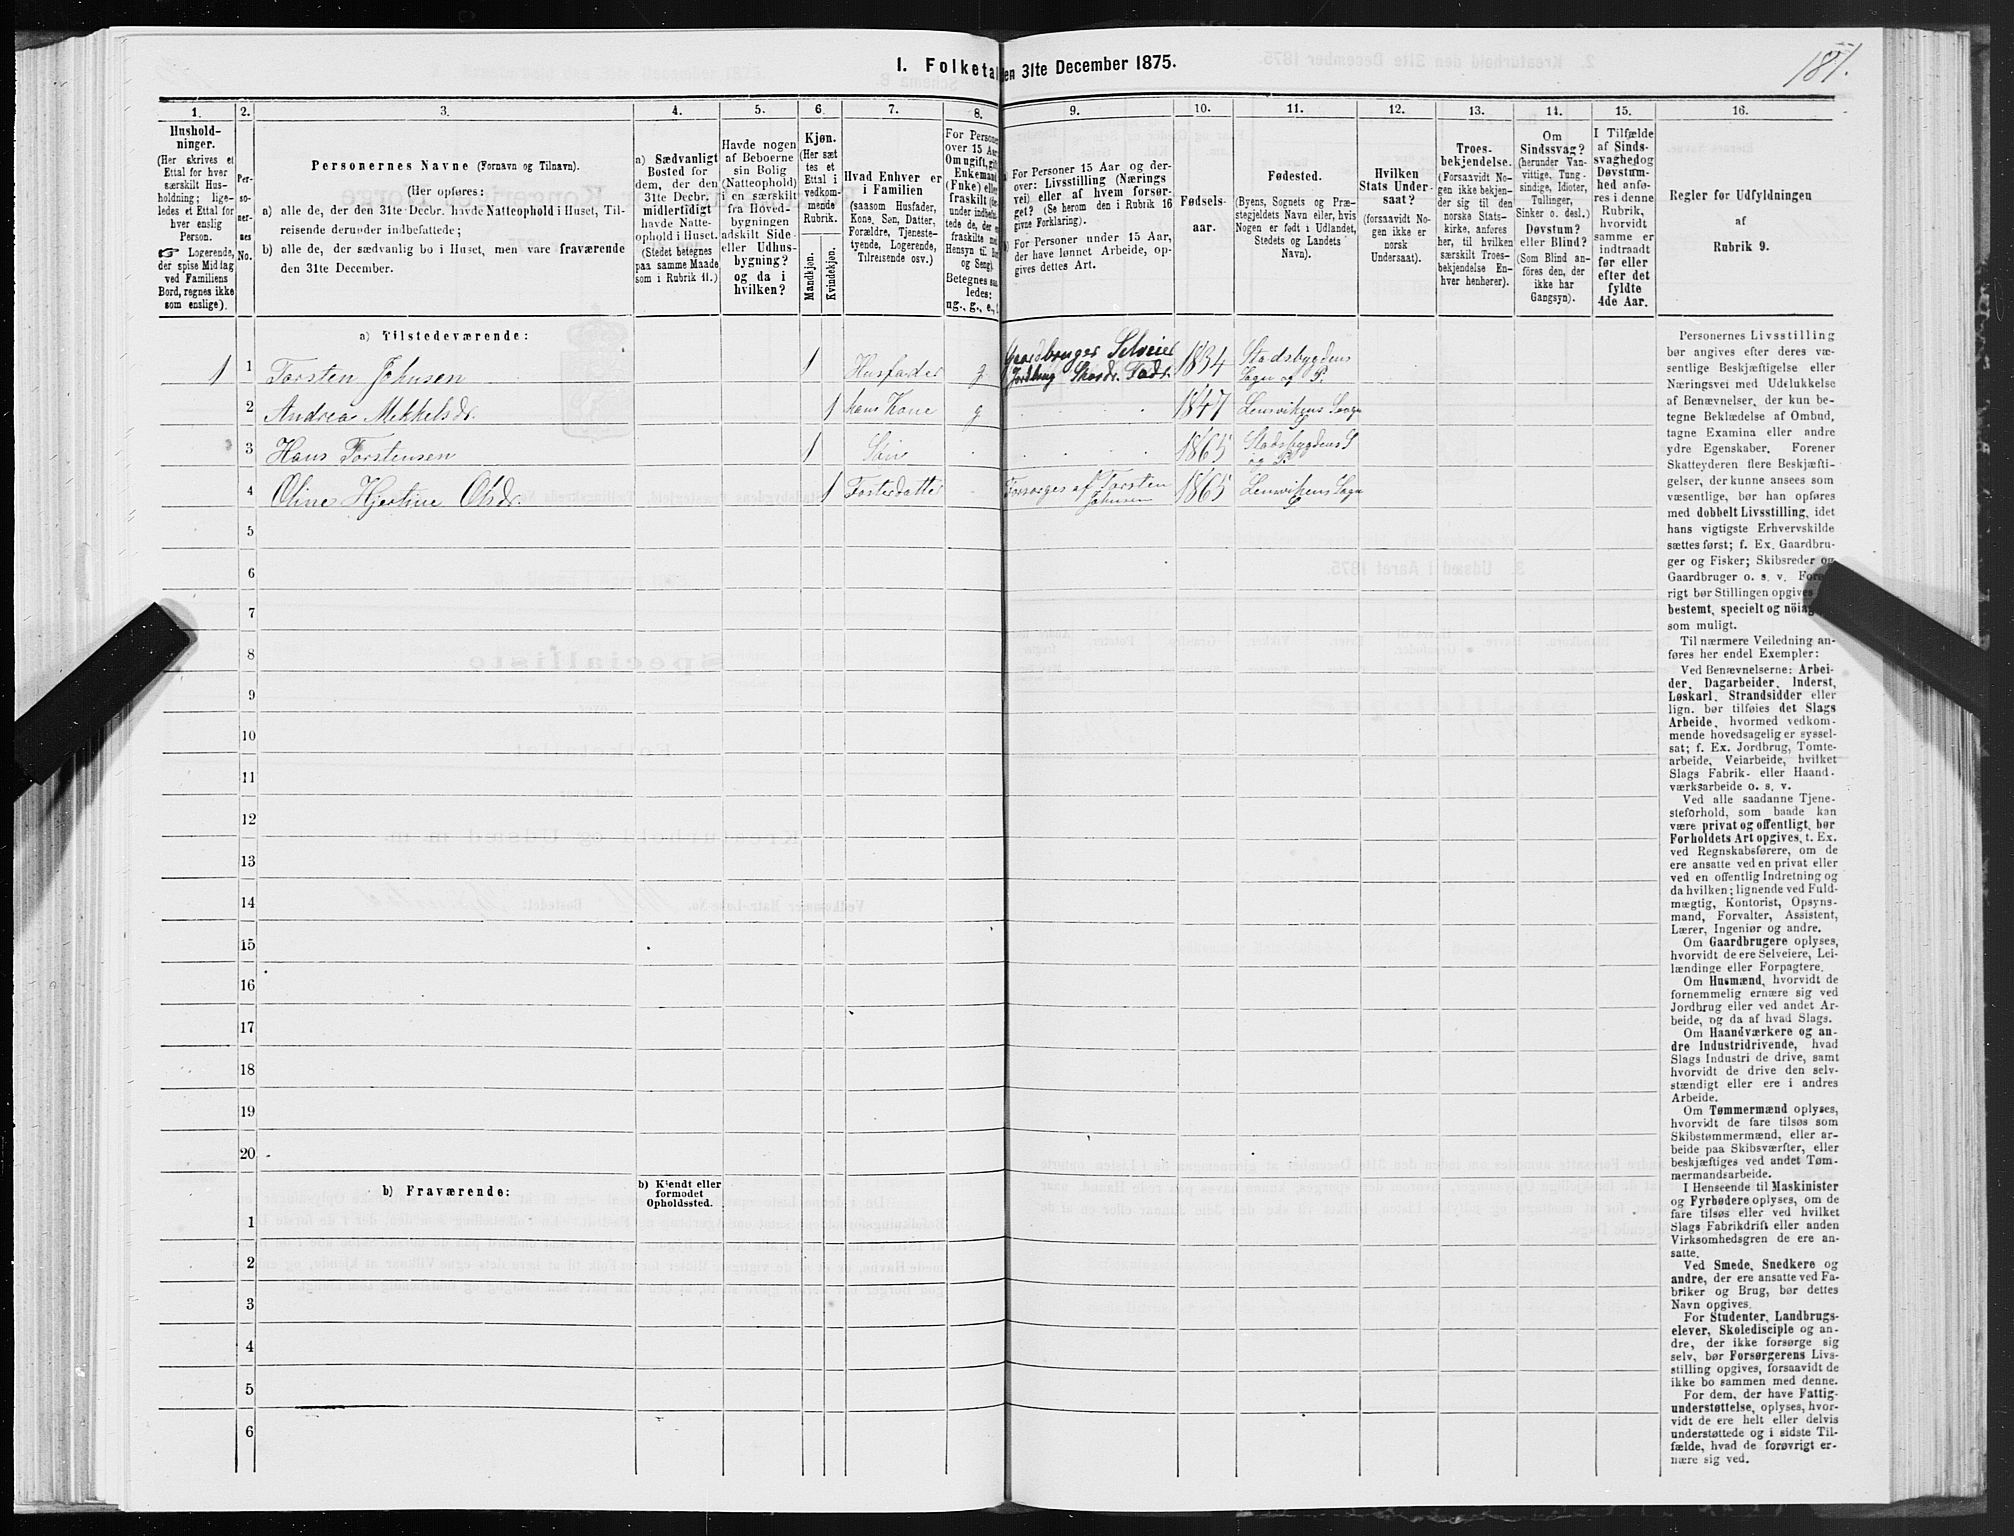 181.
I. Folketal
en 31te December 1875.
1.
2.
3.
4.
5.
6.
7.
8.
9.
10.
11.
12.
13.
14.
15.
16.
Hushold-
ninger.
(Her skrives et
Ettal for hver
særskilt Hus-
holdning; lige-
ledes et Ettal for
hver enslig
Person.
☞ Logerende,
der spise Middag
ved Familiens
Bord, regnes ikke
som enslige).
Per-
so-
ner-
nes
No.
Personernes Navne (Fornavn og Tilnavn).
(Her opføres:
a) alle de, der den 31te Decbr. havde Natteophold i Huset, Til-
reisende derunder indbefattede;
b) alle de, der sædvanlig bo i Huset, men vare fraværende
den 31te December.
a) Sædvanligt
Bosted for
dem, der den
31te Decbr.
midlertidigt
havde Natte-
ophold i Huset.
(Stedet betegnes
paa samme Maade
som i Rubrik 11.)
Havde nogen
af Beboerne
sin Bolig
(Natteophold)
i en særskilt
fra Hoved-
bygningen
adskilt Side-
eller Udhus-
bygning?
og da i
hvilken?
Kjøn.
(Her sæt
tes et
Ettal i
vedkom-
mende
Rubrik.
Mandkjøn.
Kvindekjøn.
Hvad Enhver er
i Familien
(saasom Husfader,
Kone, Søn, Datter,
Forældre, Tjeneste-
tyende, Logerende,
Tilreisende osv.)
For Persone
over 15 Aar
Om ugift, gif
Enkemand
(Fnke) elle
fraskilt
under indbefa
tede de, de
fraskilte
Hensyn til Bo
og Seng).
Betegnes saa
ledes:
ug., g., e.,
a) For Personer 15 Aar og der-
over: Livsstilling (Nærings
vei) eller af hvem forsør-
get? (Se herom den i Rubrik 16
givne Forklaring).
b) For Personer under 15 Aar,
der have lønnet Arbeide, op-
gives dettes Art.
Fødsels-
aar.
Fødested.
(Byens, Sognets og Præ-
stegjeldets Navn eller, hvis
Nogen er født i Udlandet,
Stedets og Landets
Navn).
Hvilken
Stats Under-
saat?
(forsaavidt No-
gen ikke er
norsk
Undersaat).
Troes-
bekjendelse.
(Forsaavidt No-
gen ikke bekjen-
der sig til den
norske Stats-
kirke, anføres
her, til hvilken
særskilt Troes-
bekjendelse En-
hver henhører).
Om
Sindssvag?
(herunder Van-
vittige, Tung-
sindige, Idioter,
Tullinger,
Sinker o. desl.)
Døvstum?
eller Blind?
(Som Blind an-
føres den, der
ikke har
Gangsyn).
I Tilfælde
af Sinds-
svaghed og
Døvstum-
hed anfø-
res i denne
Rubrik,
hvorvidt
samme er
indtraadt
før eller
efter det
fyldte
4de Aar.
Regler for Udfyldningen
af
Rubrik 9.
a) Tilstedeværende:
1 1 Torsten Johnsen 1 Husfader g Gaardbruger Selveier 1834 Stadsbygdens
Jordbrug Sogn og P.
2 Andrea Mekkelsdr. 1 hans Kone g 1847 Lensvikens Sogn
3 Hans Torstensen 1 Søn 1865 Stadsbygdens S
og P.
4 Oline Hjertine Olsdr. 1 Fosterdatter Forsørges af Torsten 1865 Lensvikens Sogn
Johnsen
5
6
7
8
9
10
11
12
13
14
15
16
17
18
19
20
b) Fraværende:
b) Kjendt eller
formodet
Opholdssted.
1
2
3
4
5
6
Personernes Livsstilling
bør angives efter deres væ-
sentlige Beskjæftigelse eller
Næringsvei med Udelukkelse
af Benævnelser, der kun be-
tegne Beklædelse af Ombud,
tagne Examina eller andre
ydre Egenskaber. Forener
Skatteyderen flere Beskjæfti-
gelser, der kunne ansees som
væsentlige, bør han opføres
med dobbelt Livsstilling, idet
hans vigtigste Erhvervskilde
sættes først; f. Ex. Gaardbru-
ger og Fisker; Skibsreder og
Gaardbruger o. s. v. Forø
rigt bør Stillingen opgives
bestemt, specielt og nöiag
som muligt.
Til nærmere Veiledning an-
føres her endel Exempler:
Ved Benævnelserne: Arbei-
der, Dagarbeider, Inderst,
Løskarl, Strandsidder eller
lign. bør tilføies det Slags
Arbeide, hvormed vedkom-
mende hovedsagelig er syssel-
sat; f. Ex. Jordbrug, Tomte-
arbeide, Veiarbeide, hvilket
Slags Fabrik- eller Haand-
værksarbeide o. s. v.
Ved alle saadanne Tjene-
steforhold, som baade kan
være privat og offentligt, bør
Forholdets Art opgives, t. Ex.
ved Regnskabsførere, om de
ere ansatte ved en privat eller
ved en offentlig Indretning og
da hvilken; lignende ved Fuld-
mægtig, Kontorist, Opsyns-
mand, Forvalter, Assistent,
Lærer, Ingeniør og andre.
Om Gaardbrugere oplyses,
hvorvidt de ere Selveiere, Lei-
lændinge eller Forpagtere.
Om Husmænd, hvorvidt de
fornemmelig ernære sig ved
Jordbrug eller ved andet Ar-
beide, og da af hvad Slags.
Om Haandværkere og an-
dre Industridrivende, hvad
Slags Industri de drive, samt
hvorvidt de drive den selv-
stændigt eller ere i andres
Arbeide.
Om Tømmermænd oplyses,
hvorvidt de fare tilsøs som
Skibstømmermænd, eller ar-
beide paa Skibsværfter, eller
beskjæftiges ved andet Tøm-
mermandsarbeide.
I Henseende til Maskinister
og Fyrbødere oplyses, om de
fare tilsøs eller ved hvilket
Slags Fabrikdrift eller anden
Virksomhedsgren de ere an-
satte.
Ved Smede, Snedkere og
andre, der ere ansatte ved Fa-
briker og Brug, bør dettes
Navn opgives.
For Studenter, Landbrugs-
elever, Skoledisciple og an-
dre, der ikke forsørge sig
selv, bør Forsørgerens Livs-
stilling opgives, forsaavidt de
ikke bo sammen med denne.
For dem, der have Fattig-
understøttelse, oplyses, hvor-
vidt de ere helt eller delvis
understøttede og i sidste Til-
fælde, hvad de forøvrigt er-
nære sig ved.